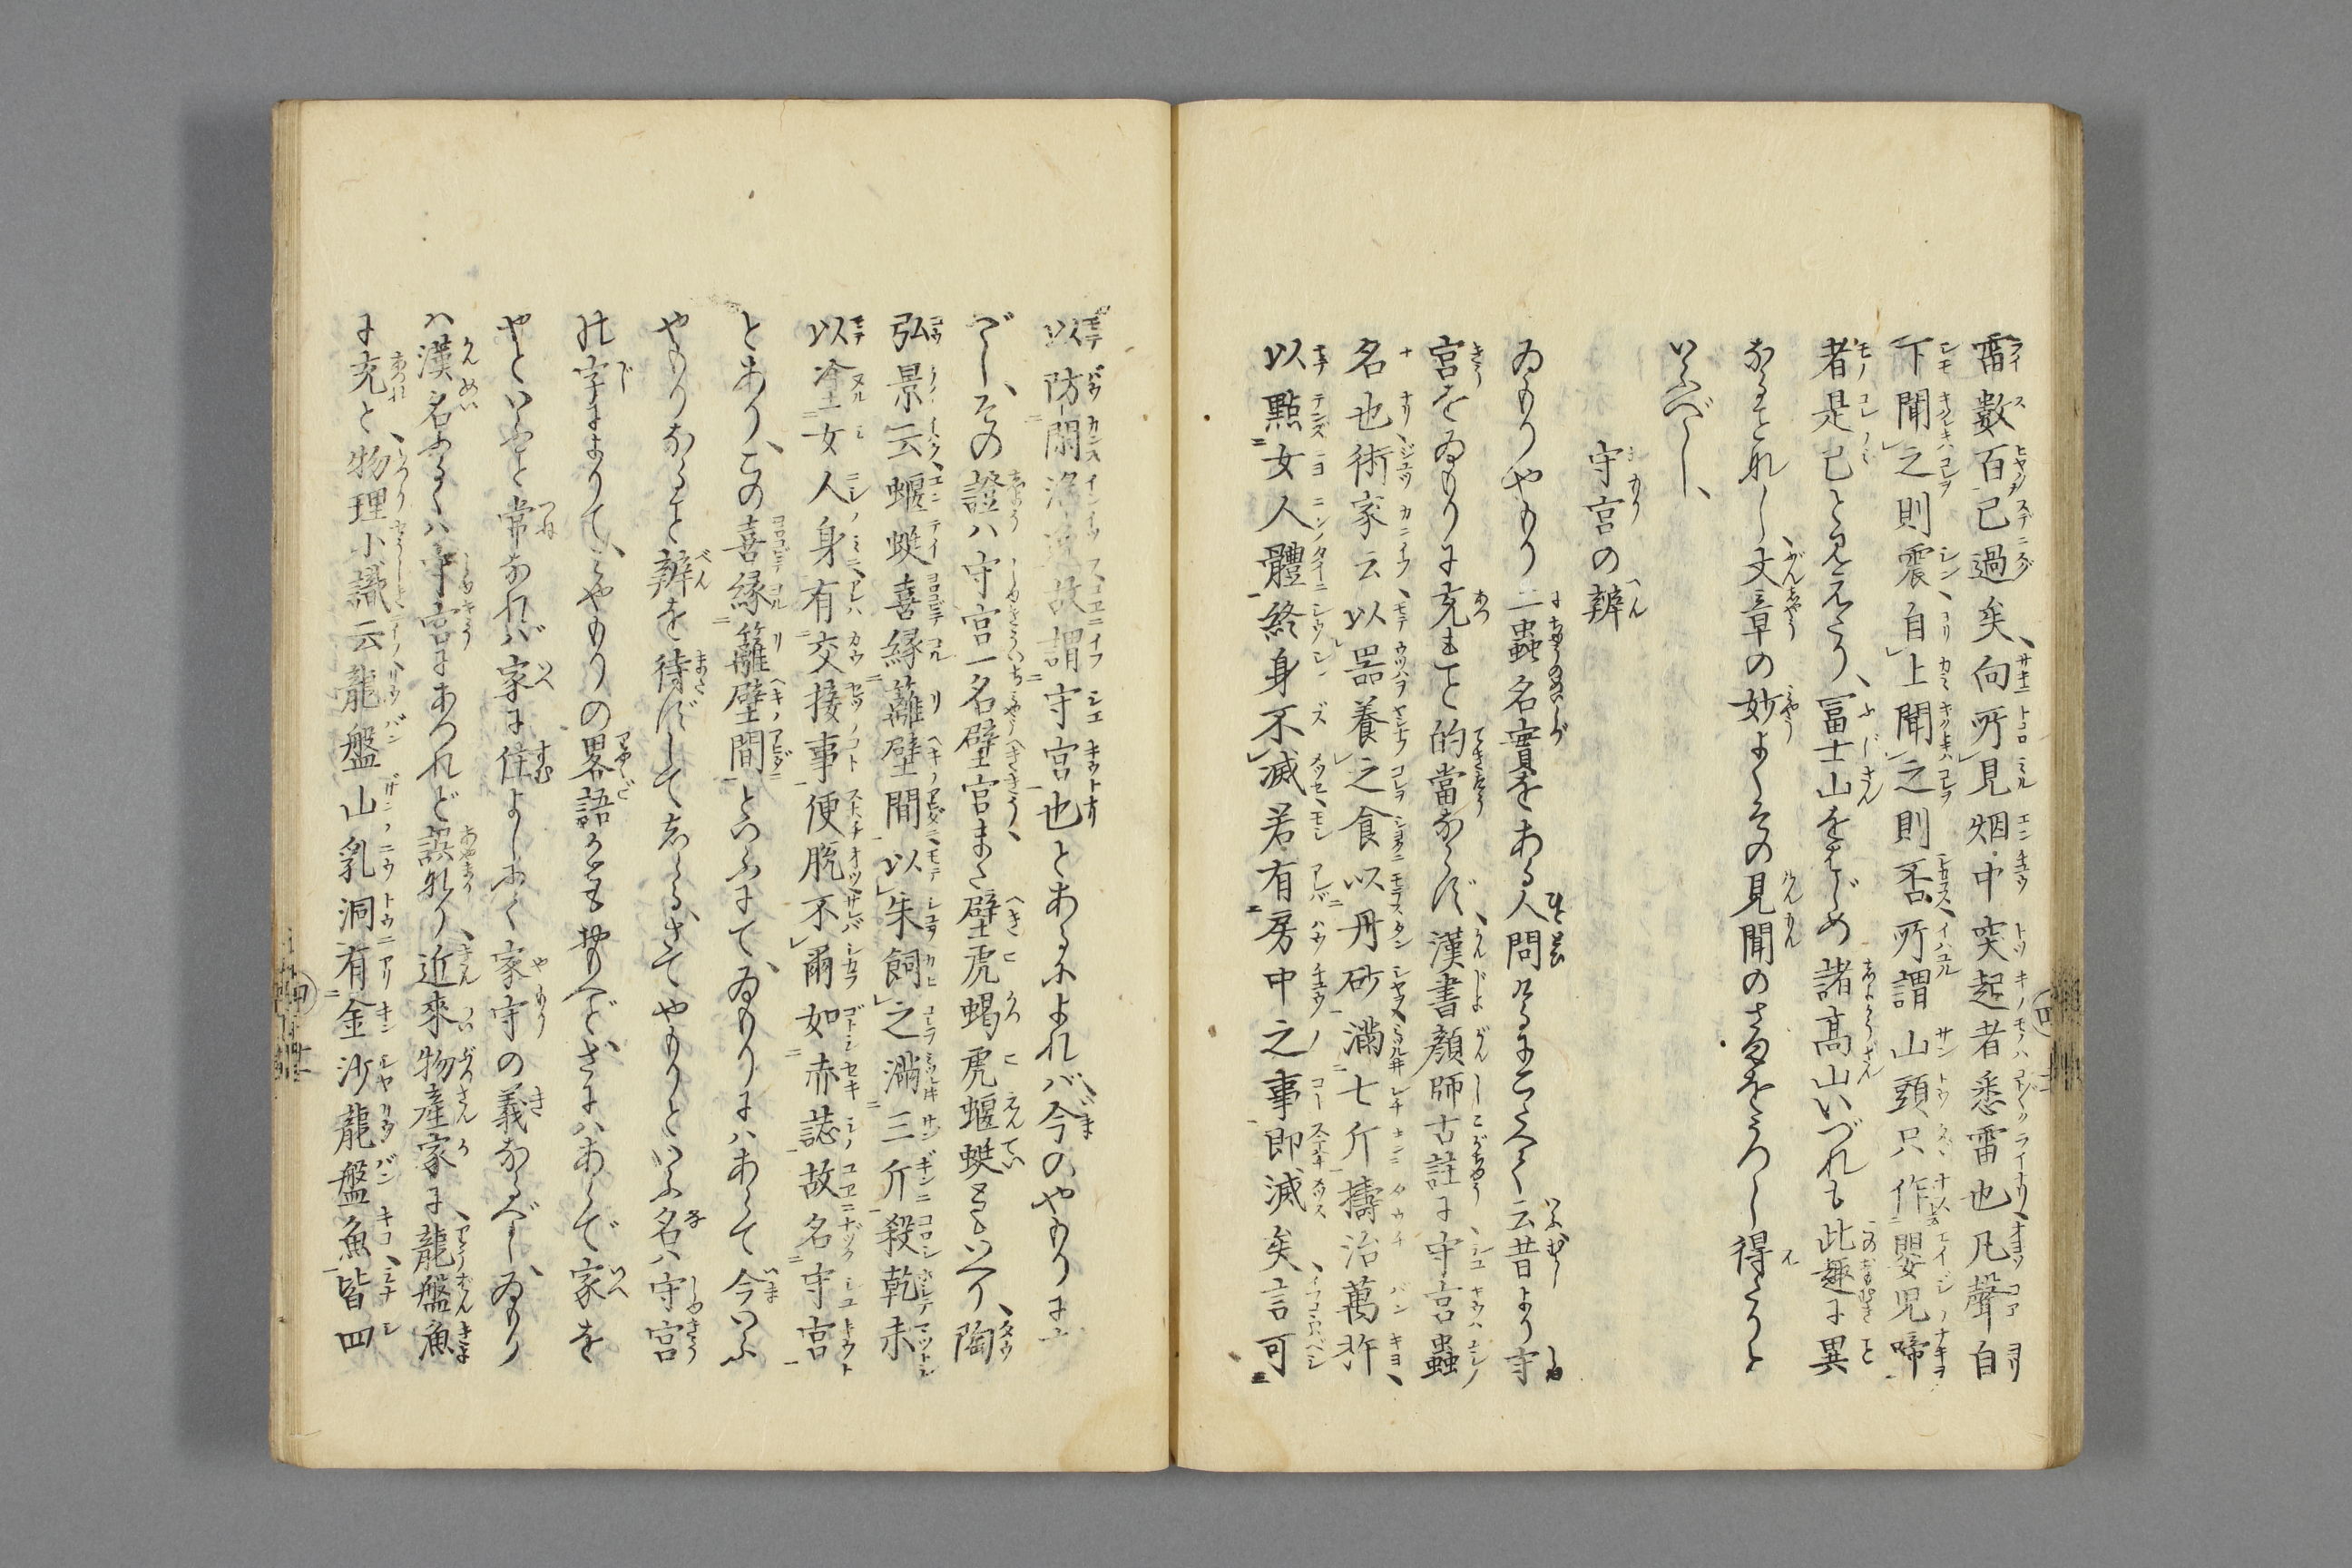 雷數百已過矣、向所見烟中突起者悉雷也凡聲自
下聞之則震、自上聞之則否所謂山頭只作嬰児啼
者是已と見えたり、冨士山をはじめ諸髙山いづれも此趣に異
なることなし、文章の妙よくその見聞のさまをうつし得たりと
いふべし、
守宮の辨
ゐもりやもり二蟲名實をある人問けるにこたへて云昔より守
宮をゐもりに充ること的當ならず、漢書顔師古註に守宮蟲
名也術家云以器養之食以丹砂滿七斤擣治萬杵、
以點女人體終身不滅若有房中之事即滅矣、言可
以防閑淫逸故謂守宮也とあるによれバ、今のやもりに
べし、その證ハ守宮一名壁宮また壁虎蝎虎蝘蜓ともいへり、陶
弘景云、蝘蜓喜縁籬壁間、以朱飼之滿三斤殺乾末
以塗女人身有交接事便脱不爾如赤誌故名守宮
とあり、この喜縁籬壁間といふにて、ゐもりにハあらて今いふ
やもりなること辨を待ずしてしるし、さてやもりといふ名ハ守宮
の字によりて、いやもりの畧語かとも思へど、さにハあらで家を
やといふこと常なれバ家に住よしなく家守の義なるべし、ゐもり
ハ漢名あるハ守宮にあつれど誤なり、近來物産家に、龍盤魚
に充と、物理小識云龍盤山乳洞有金沙龍盤魚、皆四